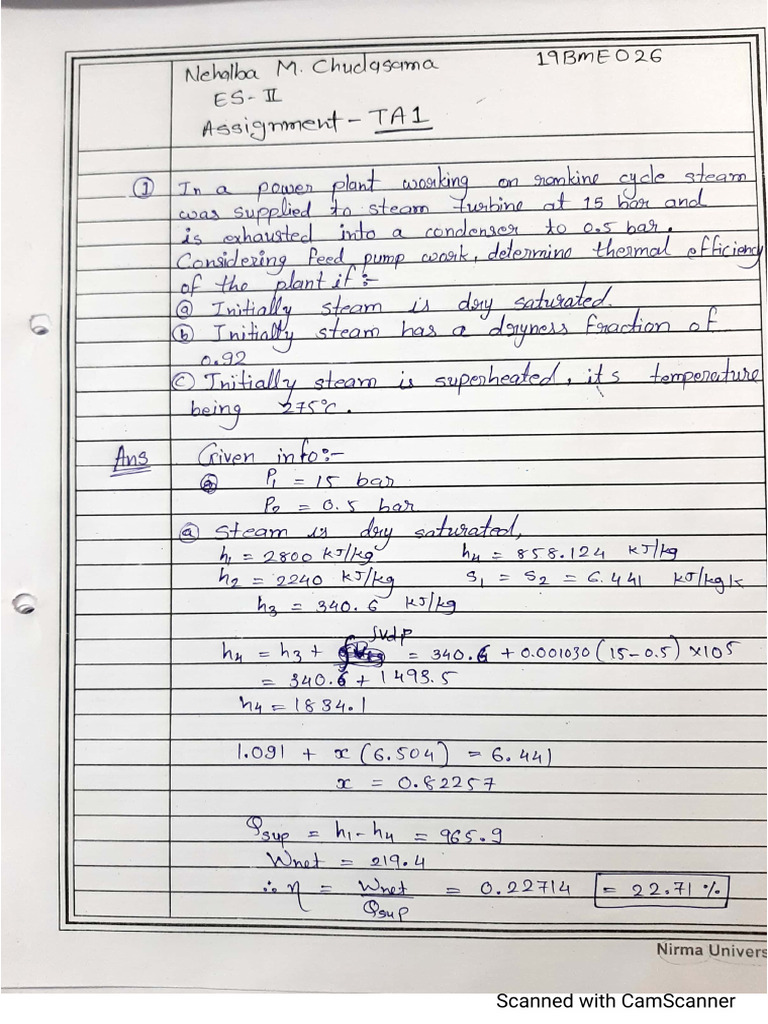 Nehalba M. Chudasama 19BME026
ES-II
Assignment - TA1
① In a power plant working on rankine cycle steam
was supplied to steam turbine at 15 bar and
is exhausted into a condenser to 0.5 bar.
Considering feed pump work, determine thermal efficiency
of the plant if:-
ⓐ Initially steam is dry saturated.
ⓑ Initially steam has a dryness fraction of
0.92
ⓒ Initially steam is superheated, it's temperature
being 275°C.
Ans Given info:-
P₁ = 15 bar
P₂ = 0.5 bar
ⓐ Steam is dry saturated,
h₁ = 2800 KJ/kg h₄ = 858.124 KJ/kg
h₂ = 2240 KJ/kg S₁ = S₂ = 6.441 KJ/kgK
h₃ = 340.6 KJ/kg
h₄ = h₃ + ∫vdp = 340.6 + 0.001030 (15-0.5) ×105
= 340.6 + 1493.5
h₄ = 1834.1
1.091 + x (6.504) = 6.441
x = 0.82257
Qsup = h₁ - h₄ = 965.9
Wnet = 219.4
∴ η = Wnet/Qsup = 0.22714 = 22.71 %
Nirma Univers
Scanned with CamScanner